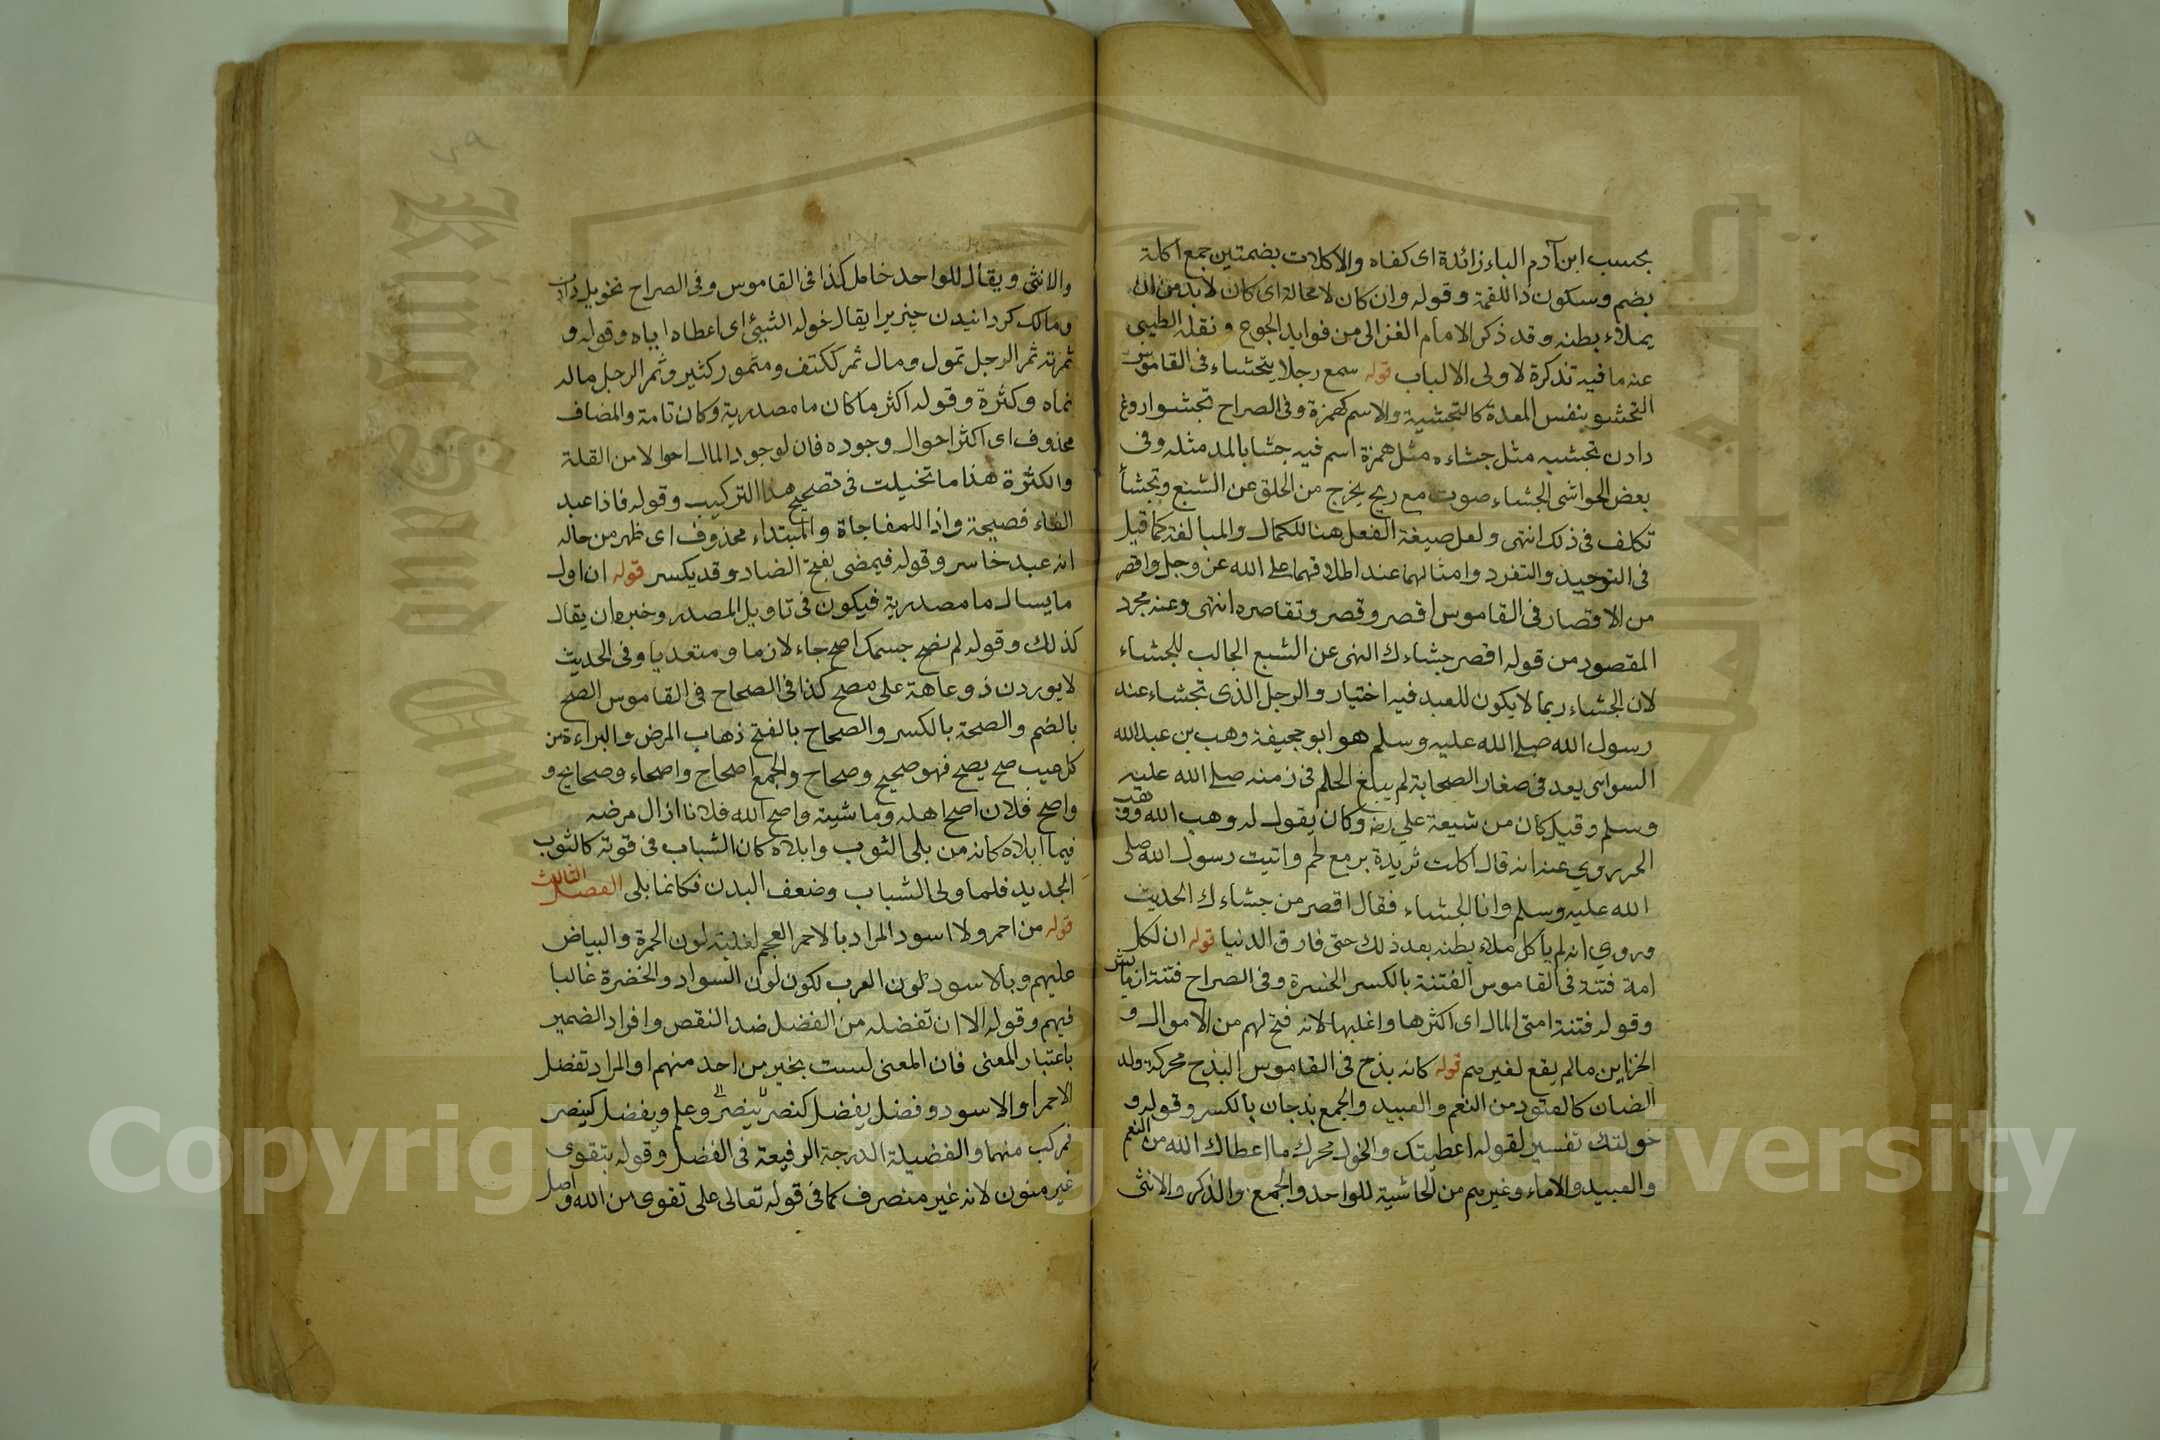 بحسب ابن آدم الباء زائدة اى كفاه والاكلات بضمتين جمع اكلة
بضم وسكون دا للقمة وقوله وان كان لا محالة اى كان لابد من ان
يملاء بطنه وقد ذكر الامام الغزالى من فوايد الجوع ونقله الطيبى
عنه ما فيه تذكرة لاولى الالباب قوله سمع رجلا يتجشاء فى القاموس
التجشو بنفس المعدة كالتجشية والاسم كهمزة وفى الصراح تجشوا روغ
دادن تجشيه مثل جشاءه مثل همزة اسم فيه جشا بالمد مثله وفى
بعض الحواشى الجشاء صوت مع ريح يخرج من الحلق عن الشبع وتجشأ
تكلف فى ذلك انتهى ولعل صيغة الفعل هنا للكمال والمبالغة كما قيل
فى التوحيد والتفرد وامثالهما عند اطلاقهما على الله عز وجل واقصر
من الاقصار فى القاموس اقصر وقصر وتقاصره انتهى وعنه مجرد
المقصود من قوله اقصر جشاءك النهى عن الشبع الجالب للجشاء
لان الجشاء ربما لا يكون للعبد فيه اختيار والرجل الذى تجشاء عند
رسول الله صلى الله عليه وسلم هو ابو جحيفة وهب بن عبدالله
السواى يعد فى صغار الصحابة لم يبلغ الحلم فى زمنه صلى الله عليه
وسلم وقيل كان من شيعة على رضه وكان يقول له وهب الله ووهب
الخر روي عنه انه قال اكلت ثريدة بر مع لحم واتيت رسول الله صلى
الله عليه وسلم وانا الجشاء فقال اقصر من جشاءك الحديث
وروي انه لم ياكل ملاء بطنه بعد ذلك حتى فارق الدنيا قوله ان لكل
امة فتنة فى القاموس الفتنة بالكسر الخسرة وفى الصراح فتنة ازمايش
وقوله فتنة امتى المال اى اكثرها واغلبها لانه فتح لهم من الاموال و
الخزاين ما لم يقع لغيرهم قوله كانه بذج فى القاموس البذج محركة ولد
الضان كالعتود من النعم والعبيد والجمع بذجان بالكسر وقوله و
خولتك تفسير لقوله اعطيتك والخول محرك ما اعطاك الله من النعم
والعبيد والاماء وغيرهم من الحاشية للواحد والجمع والذكر والانثى
والانثى ويقال للواحد خامل كذا فى القاموس وفى الصراح تخويل دادن
ومالك كردانيدن چيزيرا يقال خوله الشيئ اى اعطاه اياه وقوله و
ثمرته ثمر الرجل تمول ومال ثمر ككتف ومثمور كثير وثمر الرجل ماله
نماه وكثرة وقوله اكثر ما كان ما مصدرية وكان تامة والمضاف
محذوف اى اكثر احوال وجوده فان لوجود المال احوالا من القلة
والكثرة هذا ما تخيلت فى تصحيح هذا التركيب وقوله فاذا عبد
الفاء فصيحة واذا للمفاجاة والمبتداء محذوف اى ظهر من حاله
انه عبد خاسر وقوله فيمضى بفتح الضاد وقد يكسر قوله ان اول
ما يسال ما مصدرية فيكون فى تاويل المصدر وخبره ان يقال
كذلك وقوله لم نصح جسمك اصح جاء لازما ومتعديا وفى الحديث
لا يوردن ذو عاهة على مصح كذا فى الصحاح فى القاموس الصح
بالضم والصحة بالكسر والصحاح بالفتح ذهاب المرض والبراءة من
كل عيب صح يصح فهو صحيح وصحاح والجمع اصحاح واصحاء وصحايح و
واصح فلان اصح اهله وماشيته واصح الله فلانا ازال مرضه
فيما ابلاه كانه من بلى الثوب وابلاه كان الشباب فى قوته كالثوب
الجديد فلما ولى الشباب وضعف البدن فكانما بلى الفصل الثالث
قوله من احمر ولا اسود المراد بالاحمر العجم لغلبة لون الحمرة والبياض
عليهم وبالاسود لون العرب لكون لون السواد والخضرة غالبا
فيهم وقوله الا ان تفضله من الفضل ضد النقص وافراد الضمير
باعتبار المعنى فان المعنى لست بخير من احد منهم او المراد تفضل
الاحمر او الاسود وفضل يفضل كنصر ينصر وعلم ويفضل كينصر
فمركب منهما والفضيلة الدرجة الرفيعة فى الفضل وقوله بتقوى
غير منون لانه غير منصرف كما فى قوله تعالى على تقوى من الله واصل
Copyright © King Saud University
King Saud University